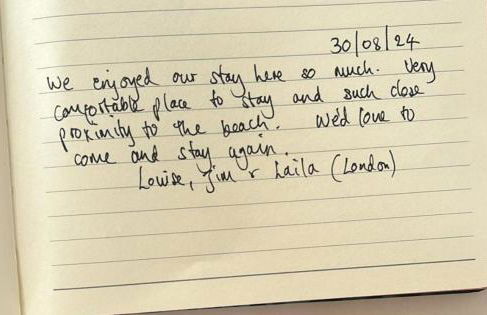 30/08/24
We enjoyed our stay here so much. Very
comfortable place to stay and such close
proximity to the beach. We'd love to
come and stay again.
Louise, Jim & Laila (London)